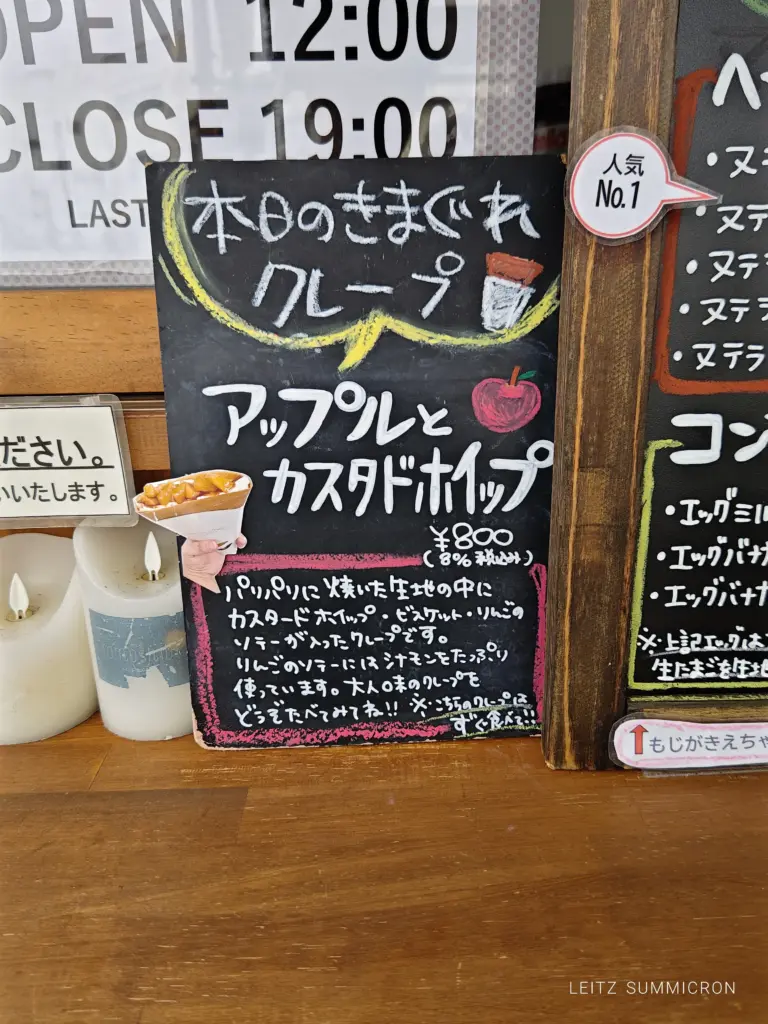 OPEN 12:00
CLOSE 19:00
LAST
本日のきまぐれ
クレープ
アップルと
カスタドホイップ
¥800
(8%税込み)
パリパリに焼いた生地の中に
カスタードホイップ・ビスケット・りんごの
ソテーが入ったクレープです。
りんごのソテーにはシナモンをたっぷり
使っています。大人味のクレープを
どうぞたべてみてね!! ※こちらのクレープは
すぐ食べて!!
ださい。
いいたします。
人気
No.1
ヘ
・ヌ
・ヌテ
・ヌテ
・ヌテラ
・ヌテラ
コン
・エッグミル
・エッグバナ
・エッグバナナ
※上記エッグは
生たまごを生地
↑もじがきえちゃ
LEITZ SUMMICRON